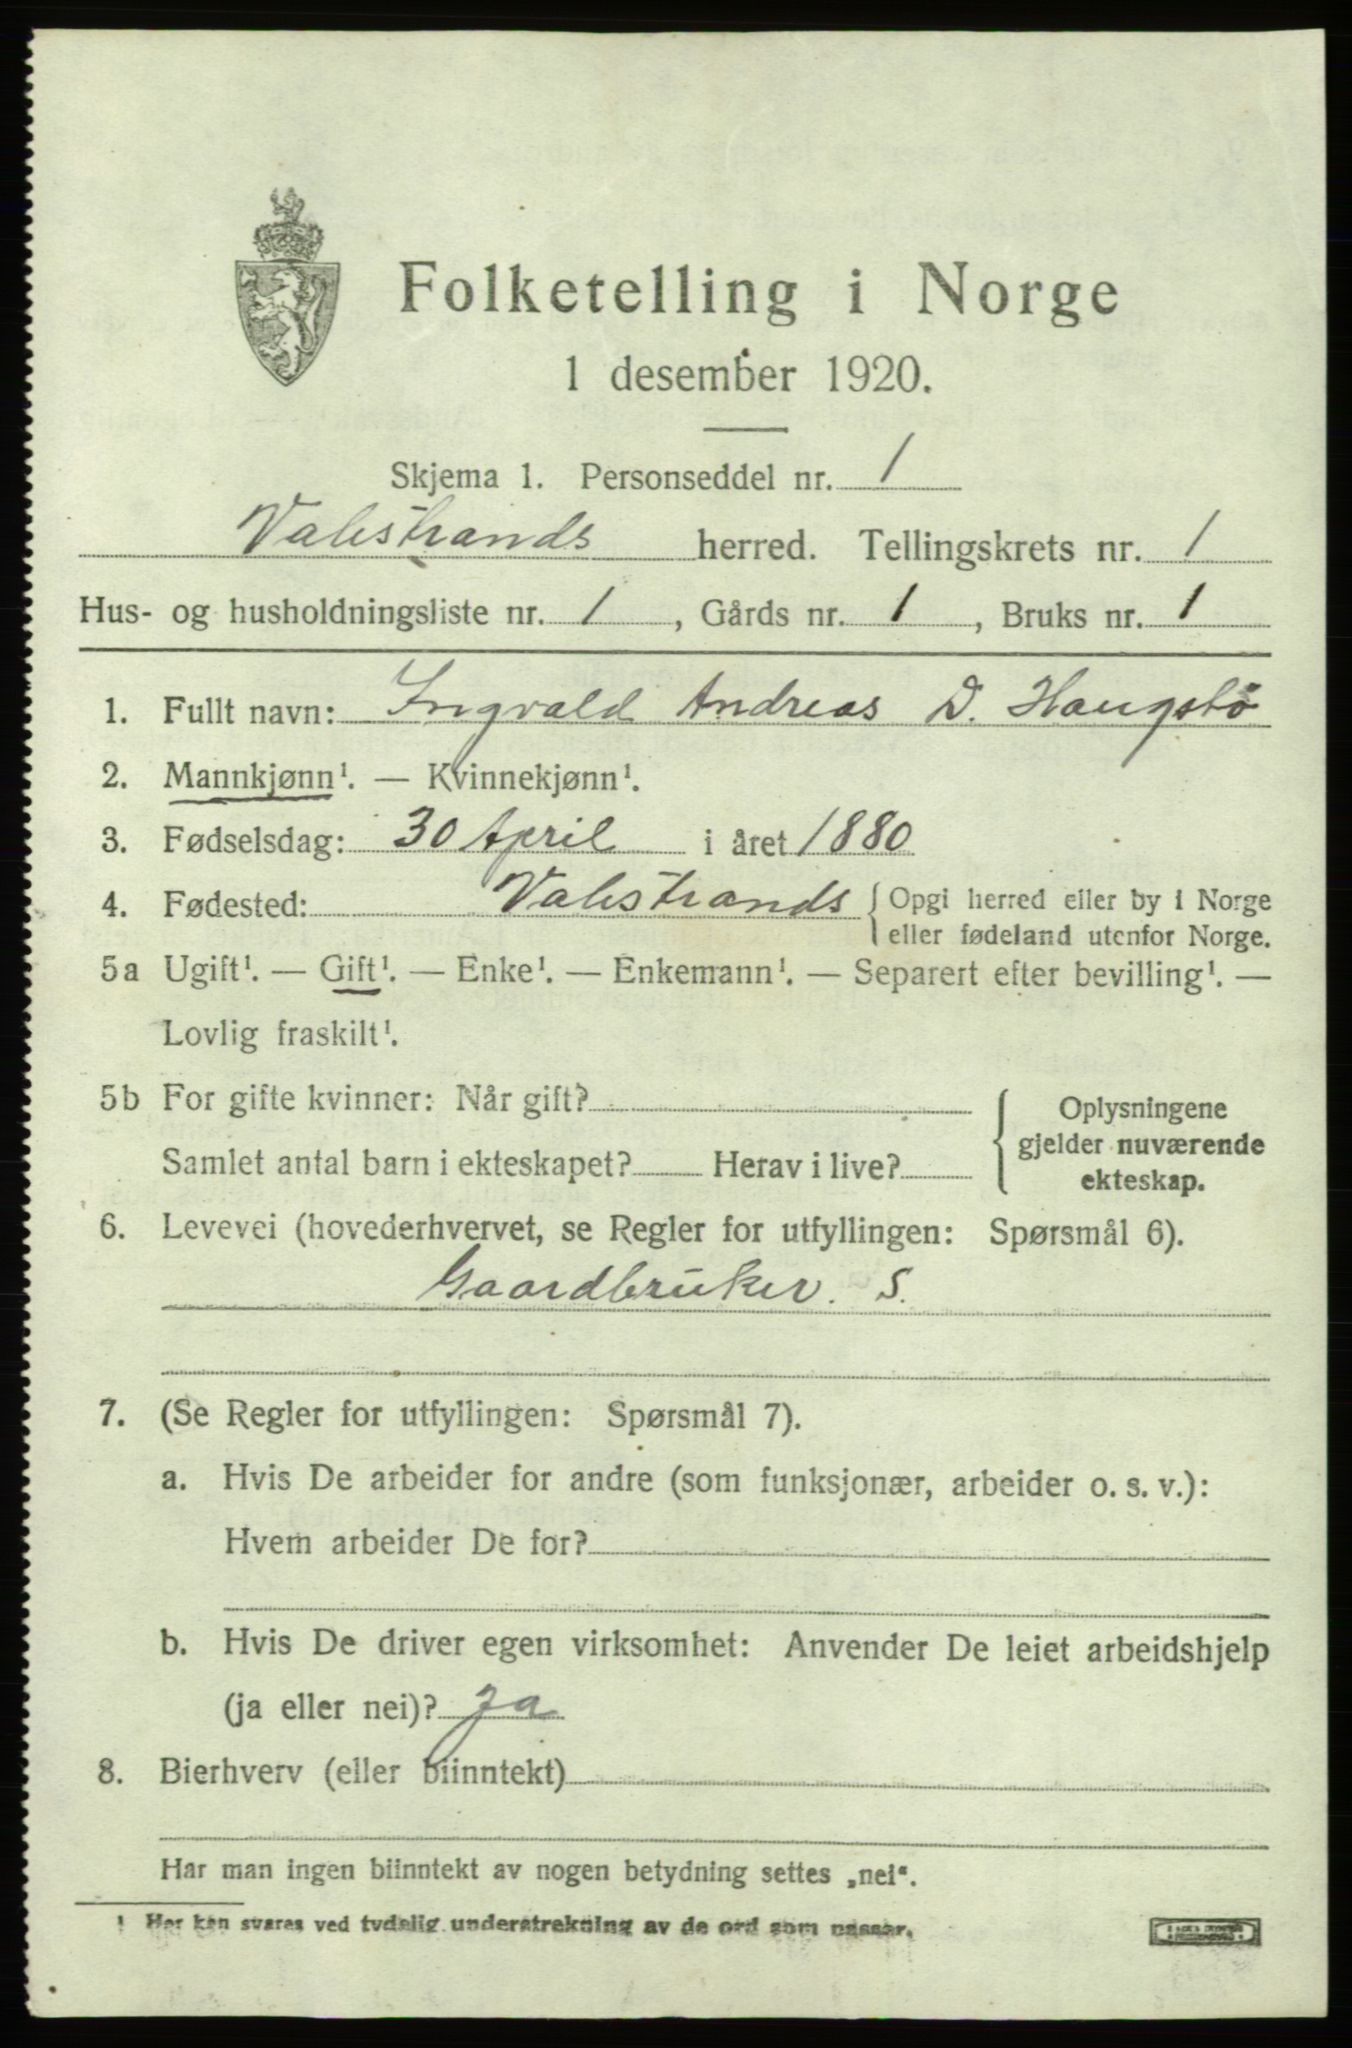 Folketelling i Norge
1 desember 1920.
Skjema 1. Personseddel nr. 1
Valestrands herred. Tellingskrets nr. 1
Hus- og husholdningsliste nr. 1, Gårds nr. 1, Bruks nr. 1
1. Fullt navn: Ingvald Andreas D. Haugstø
2. Mannkjønn¹. — Kvinnekjønn¹.
3. Fødselsdag: 30 April i året 1880
4. Fødested: Valestrands { Opgi herred eller by i Norge
eller fødeland utenfor Norge.
5a Ugift¹. — Gift¹. — Enke¹. — Enkemann¹. — Separert efter bevilling¹. —
Lovlig fraskilt¹.
5b For gifte kvinner: Når gift?
Samlet antal barn i ekteskapet? Herav i live?
Oplysningene
gjelder nuværende
ekteskap.
6. Levevei (hovederhvervet, se Regler for utfyllingen: Spørsmål 6).
Gaardbruker. S.
7. (Se Regler for utfyllingen: Spørsmål 7).
a. Hvis De arbeider for andre (som funksjonær, arbeider o. s. v.):
Hvem arbeider De for?
b. Hvis De driver egen virksomhet: Anvender De leiet arbeidshjelp
(ja eller nei)? Ja
8. Bierhverv (eller biinntekt)
Har man ingen biinntekt av nogen betydning settes „nei“.
¹ Her kan svares ved tydelig understrekning av de ord som passer.